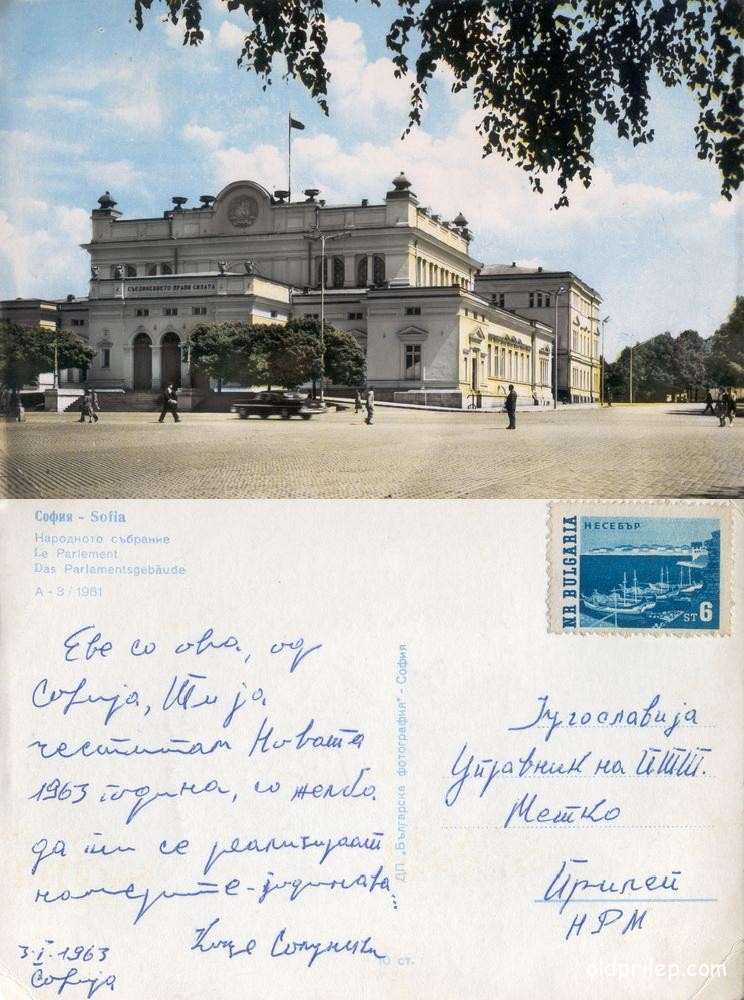 СЪЕДИНЕНИЕТО ПРАВИ СИЛАТА
София - Sofia
Народното събрание
Le Parlement
Das Parlamentsgebäude
А - 3 / 1961
Еве со ова, од
Софија, Ти ја
честитам Новата
1963 година, со желба
да ти се реализираат
намерите - годинава
3·I·1963
Софија
Коце Солунски
ДП „Българска фотография" - София
10 ст.
NR BULGARIA
НЕСЕБЪР
ST 6
Југославија
Управник на ПТТ.
Метко
Прилеп
НРМ
oldprilep.com